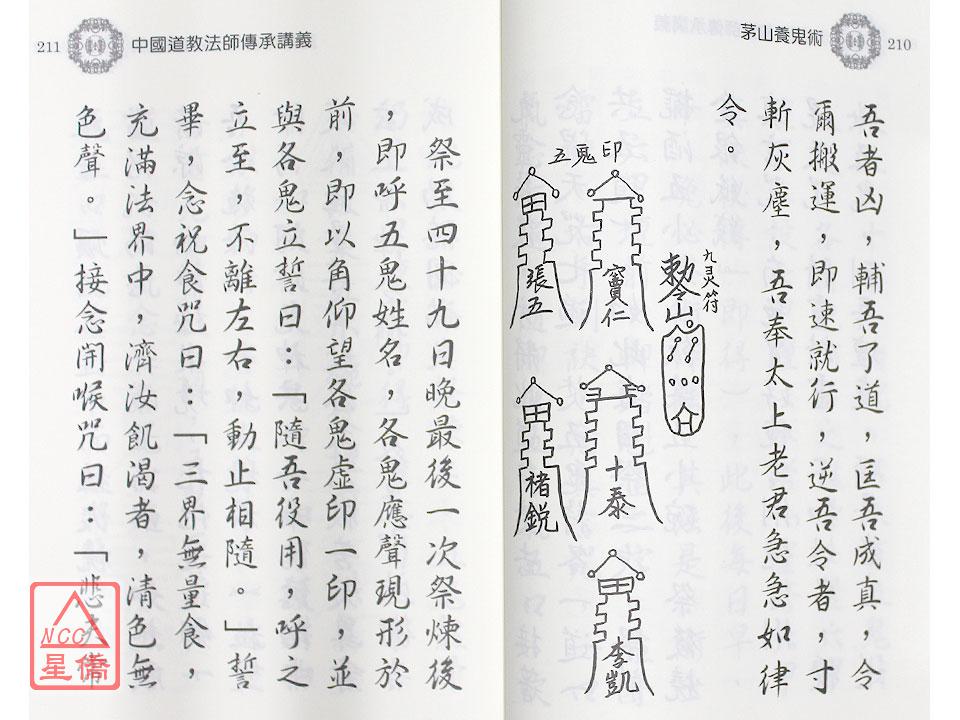 210
茅山養鬼術
吾者凶，輔吾了道，匡吾成真，令
爾搬運，即速就行，逆吾令者，寸
斬灰塵，吾奉太上老君急急如律
令。
九灵符
勅令山
五鬼印
竇仁
張五
十泰
褚鋭
李凱
211
中國道教法師傳承講義
祭至四十九日晚最後一次祭煉後
，即呼五鬼姓名，各鬼應聲現形於
前，即以角仰望各鬼虛印一印，並
與各鬼立誓曰：「隨吾役用，呼之
立至，不離左右，動止相隨。」誓
畢，念祝食咒曰：「三界無量食，
充滿法界中，濟汝飢渴者，清色無
色聲。」接念開喉咒曰：「悲夫常
NCC
星僑